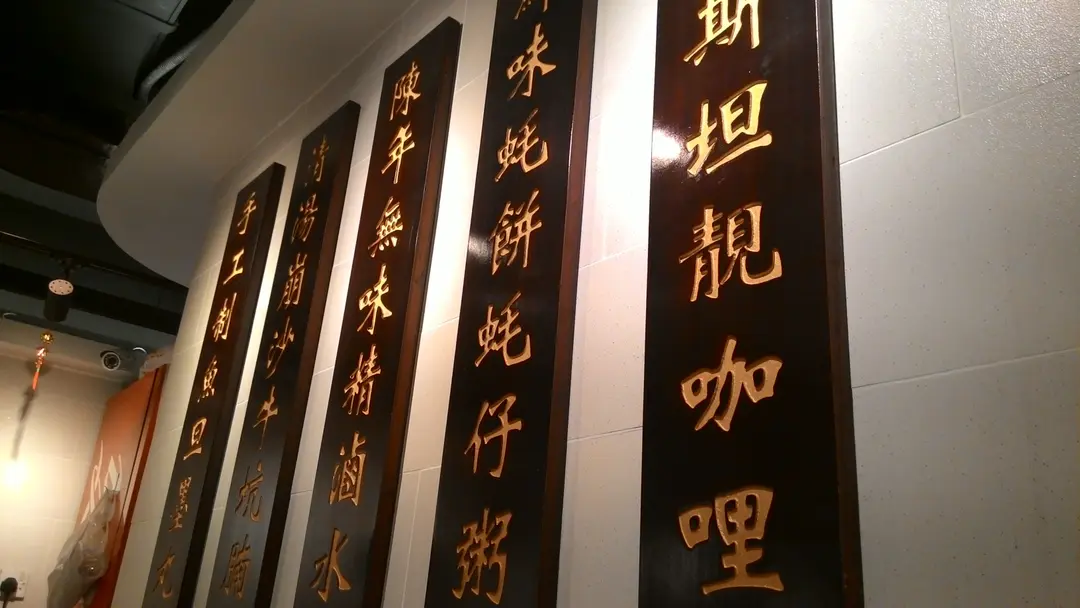 斯坦靚咖哩
味蚝餅蚝仔粥
陳年無味精滷水
清湯崩沙牛坑腩
手工制魚旦墨丸